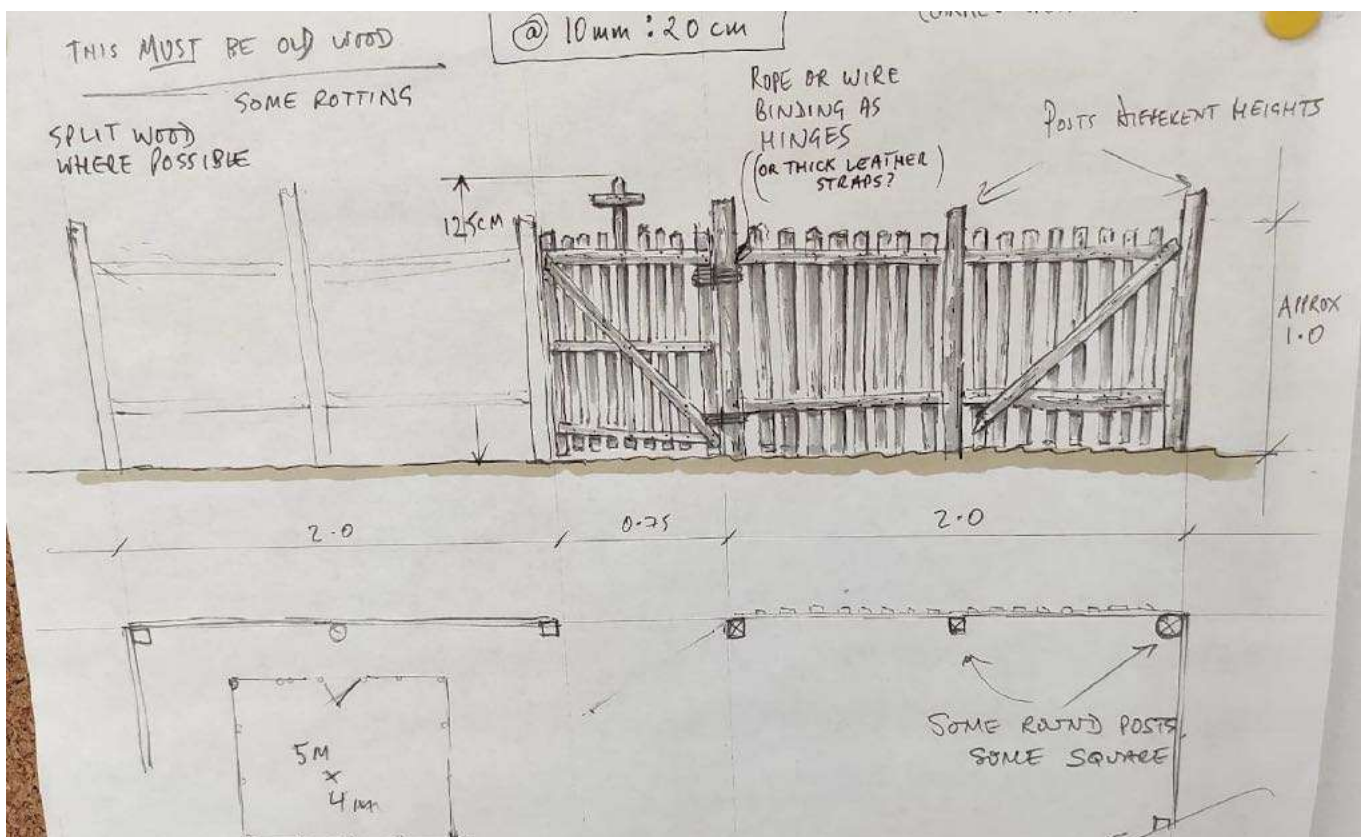 THIS MUST BE OLD WOOD
SOME ROTTING
SPLIT WOOD
WHERE POSSIBLE
@ 10mm : 20cm
ROPE OR WIRE
BINDING AS
HINGES
(OR THICK LEATHER
STRAPS?)
POSTS DIFFERENT HEIGHTS
125CM
APPROX
1.0
2.0
0.75
2.0
5M
x
4m
SOME ROUND POSTS
SOME SQUARE